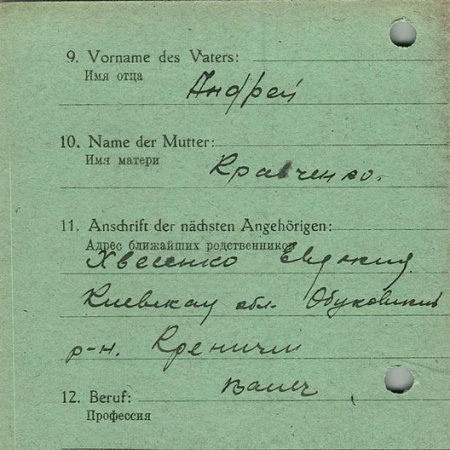 9. Vorname des Vaters:
Имя отца
Андрей
10. Name der Mutter:
Имя матери
Кравченко.
11. Anschrift der nächsten Angehörigen:
Адрес ближайших родственников
Хвесенко Евдокия
Киевская обл. Обуховский
р-н. Креничи
12. Beruf:
Профессия